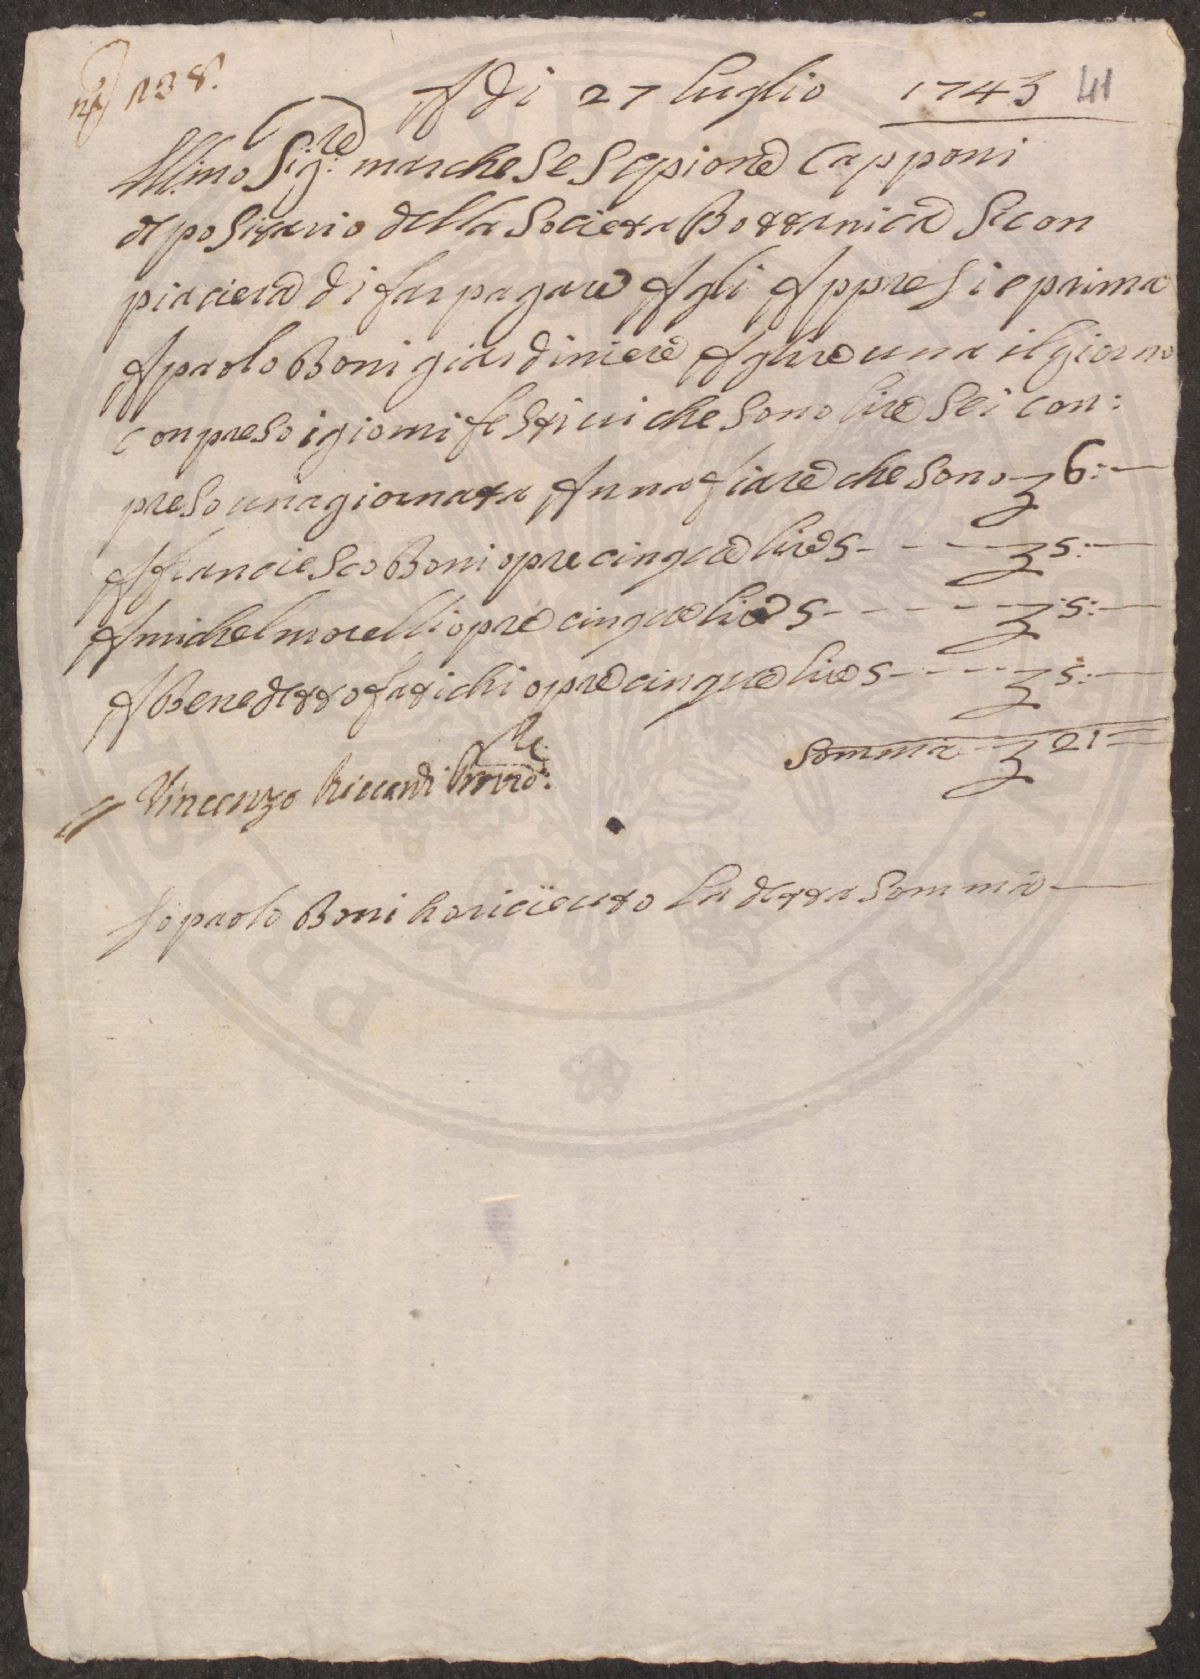 n° 138.
A di 27 luglio 1743 41
Ill:mo Sig:re marchese Scipione Capponi
depositario della Societa Bottanica Si con
piaciera di far pagare Agli Appresi e prima
A paolo Boni giardiniere A lire una il giorno
conpreso i giorni festiui che sono lire Sei con:
preso una giornata Annafiare che sono 6:—
A franciesco Boni opre cinque lire 5 - - - - 5:—
A michel morelli opre cinque lire 5 - - - - - 5:—
A Benedetto fatichi opre cinque lire 5 - - - - 5:—
Somma 21
Vincenzo Riccardi Provre:
Io paolo Boni ho riceuto La detta Somma —